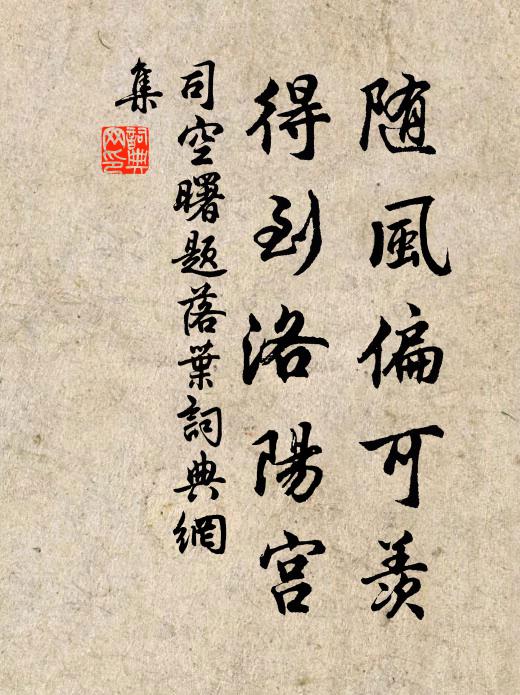 随風偏可羨
得到洛陽宮
司空曙題落葉詞典網
集
詞典網印